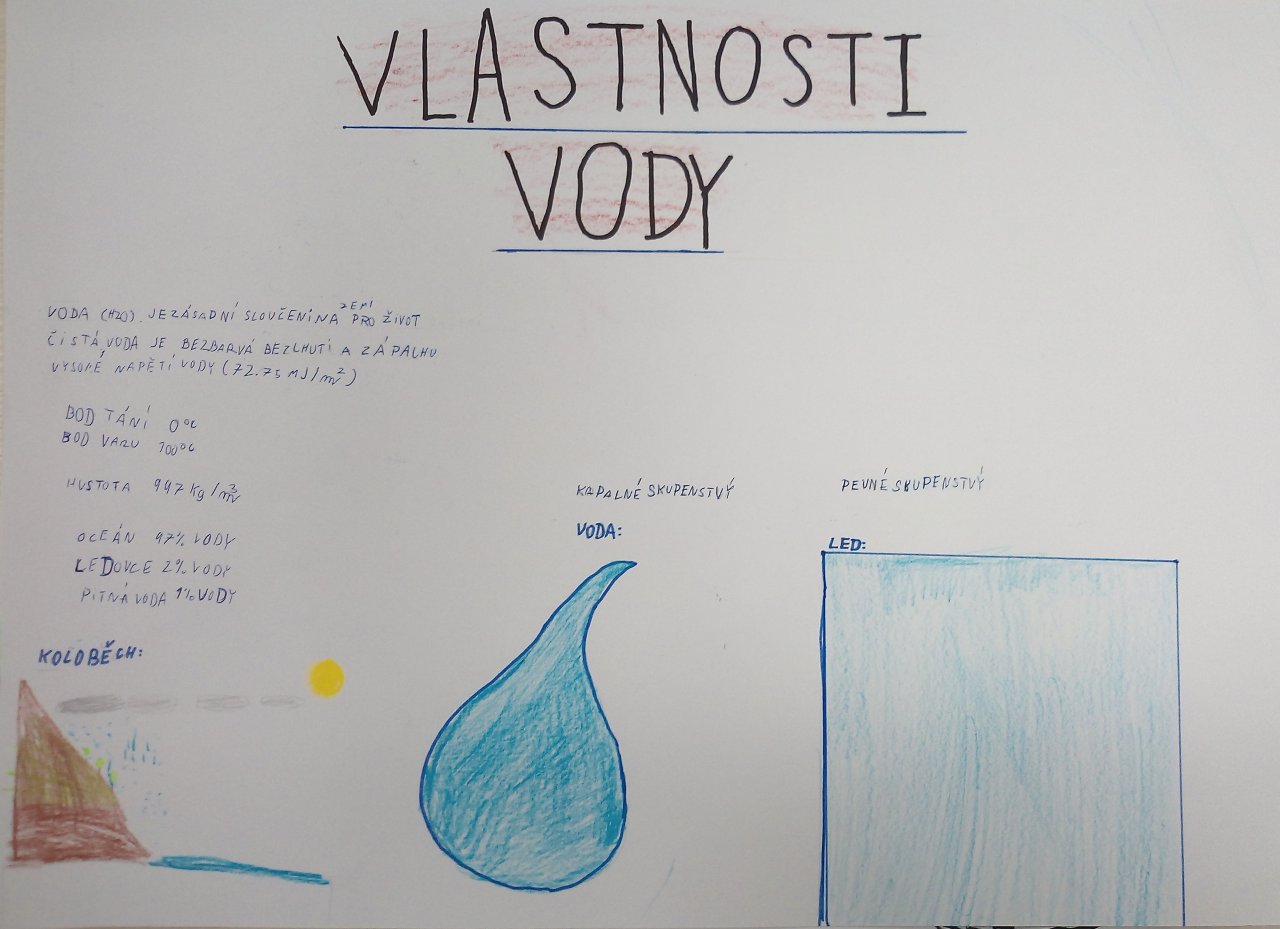 VLASTNOSTI
VODY
VODA (H2O). JE ZÁSADNÍ SLOUČENINA ZEMÍ PRO ŽIVOT
ČISTÁ VODA JE BEZBARVÁ BEZCHUTI A ZÁPACHU
VYSOKÉ NAPĚTÍ VODY (72.75 MJ/m²)
BOD TÁNÍ 0°C
BOD VARU 100°C
HUSTOTA 997 kg/m³
OCEÁN 97% VODY
LEDOVCE 2% VODY
PITNÁ VODA 1% VODY
KOLOBĚCH:
KAPALNÉ SKUPENSTVÝ
VODA:
PEVNÉ SKUPENSTVÝ
LED: